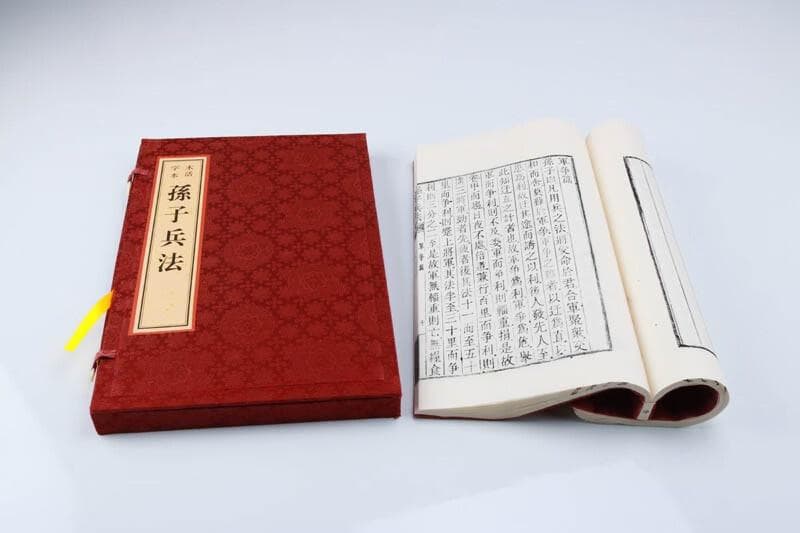 木活
字本
孫子兵法
軍争篇
孫子曰凡用兵之法將受命於君合軍聚衆交
和而舍莫難於軍争軍争之難者以迂爲直以
患爲利故迂其途而誘之以利後人發先人至
此知迂直之計者也故軍争爲利軍争爲危舉
軍而争利則不及委軍而争利則輜重捐是故
卷甲而趨日夜不處倍道兼行百里而争利則
擒三將軍勁者先疲者後其法十一而至五十
里而争利則蹶上將軍其法半至三十里而争
利則三分之二至是故軍無輜重則亡無糧食
孫子兵法
軍争篇